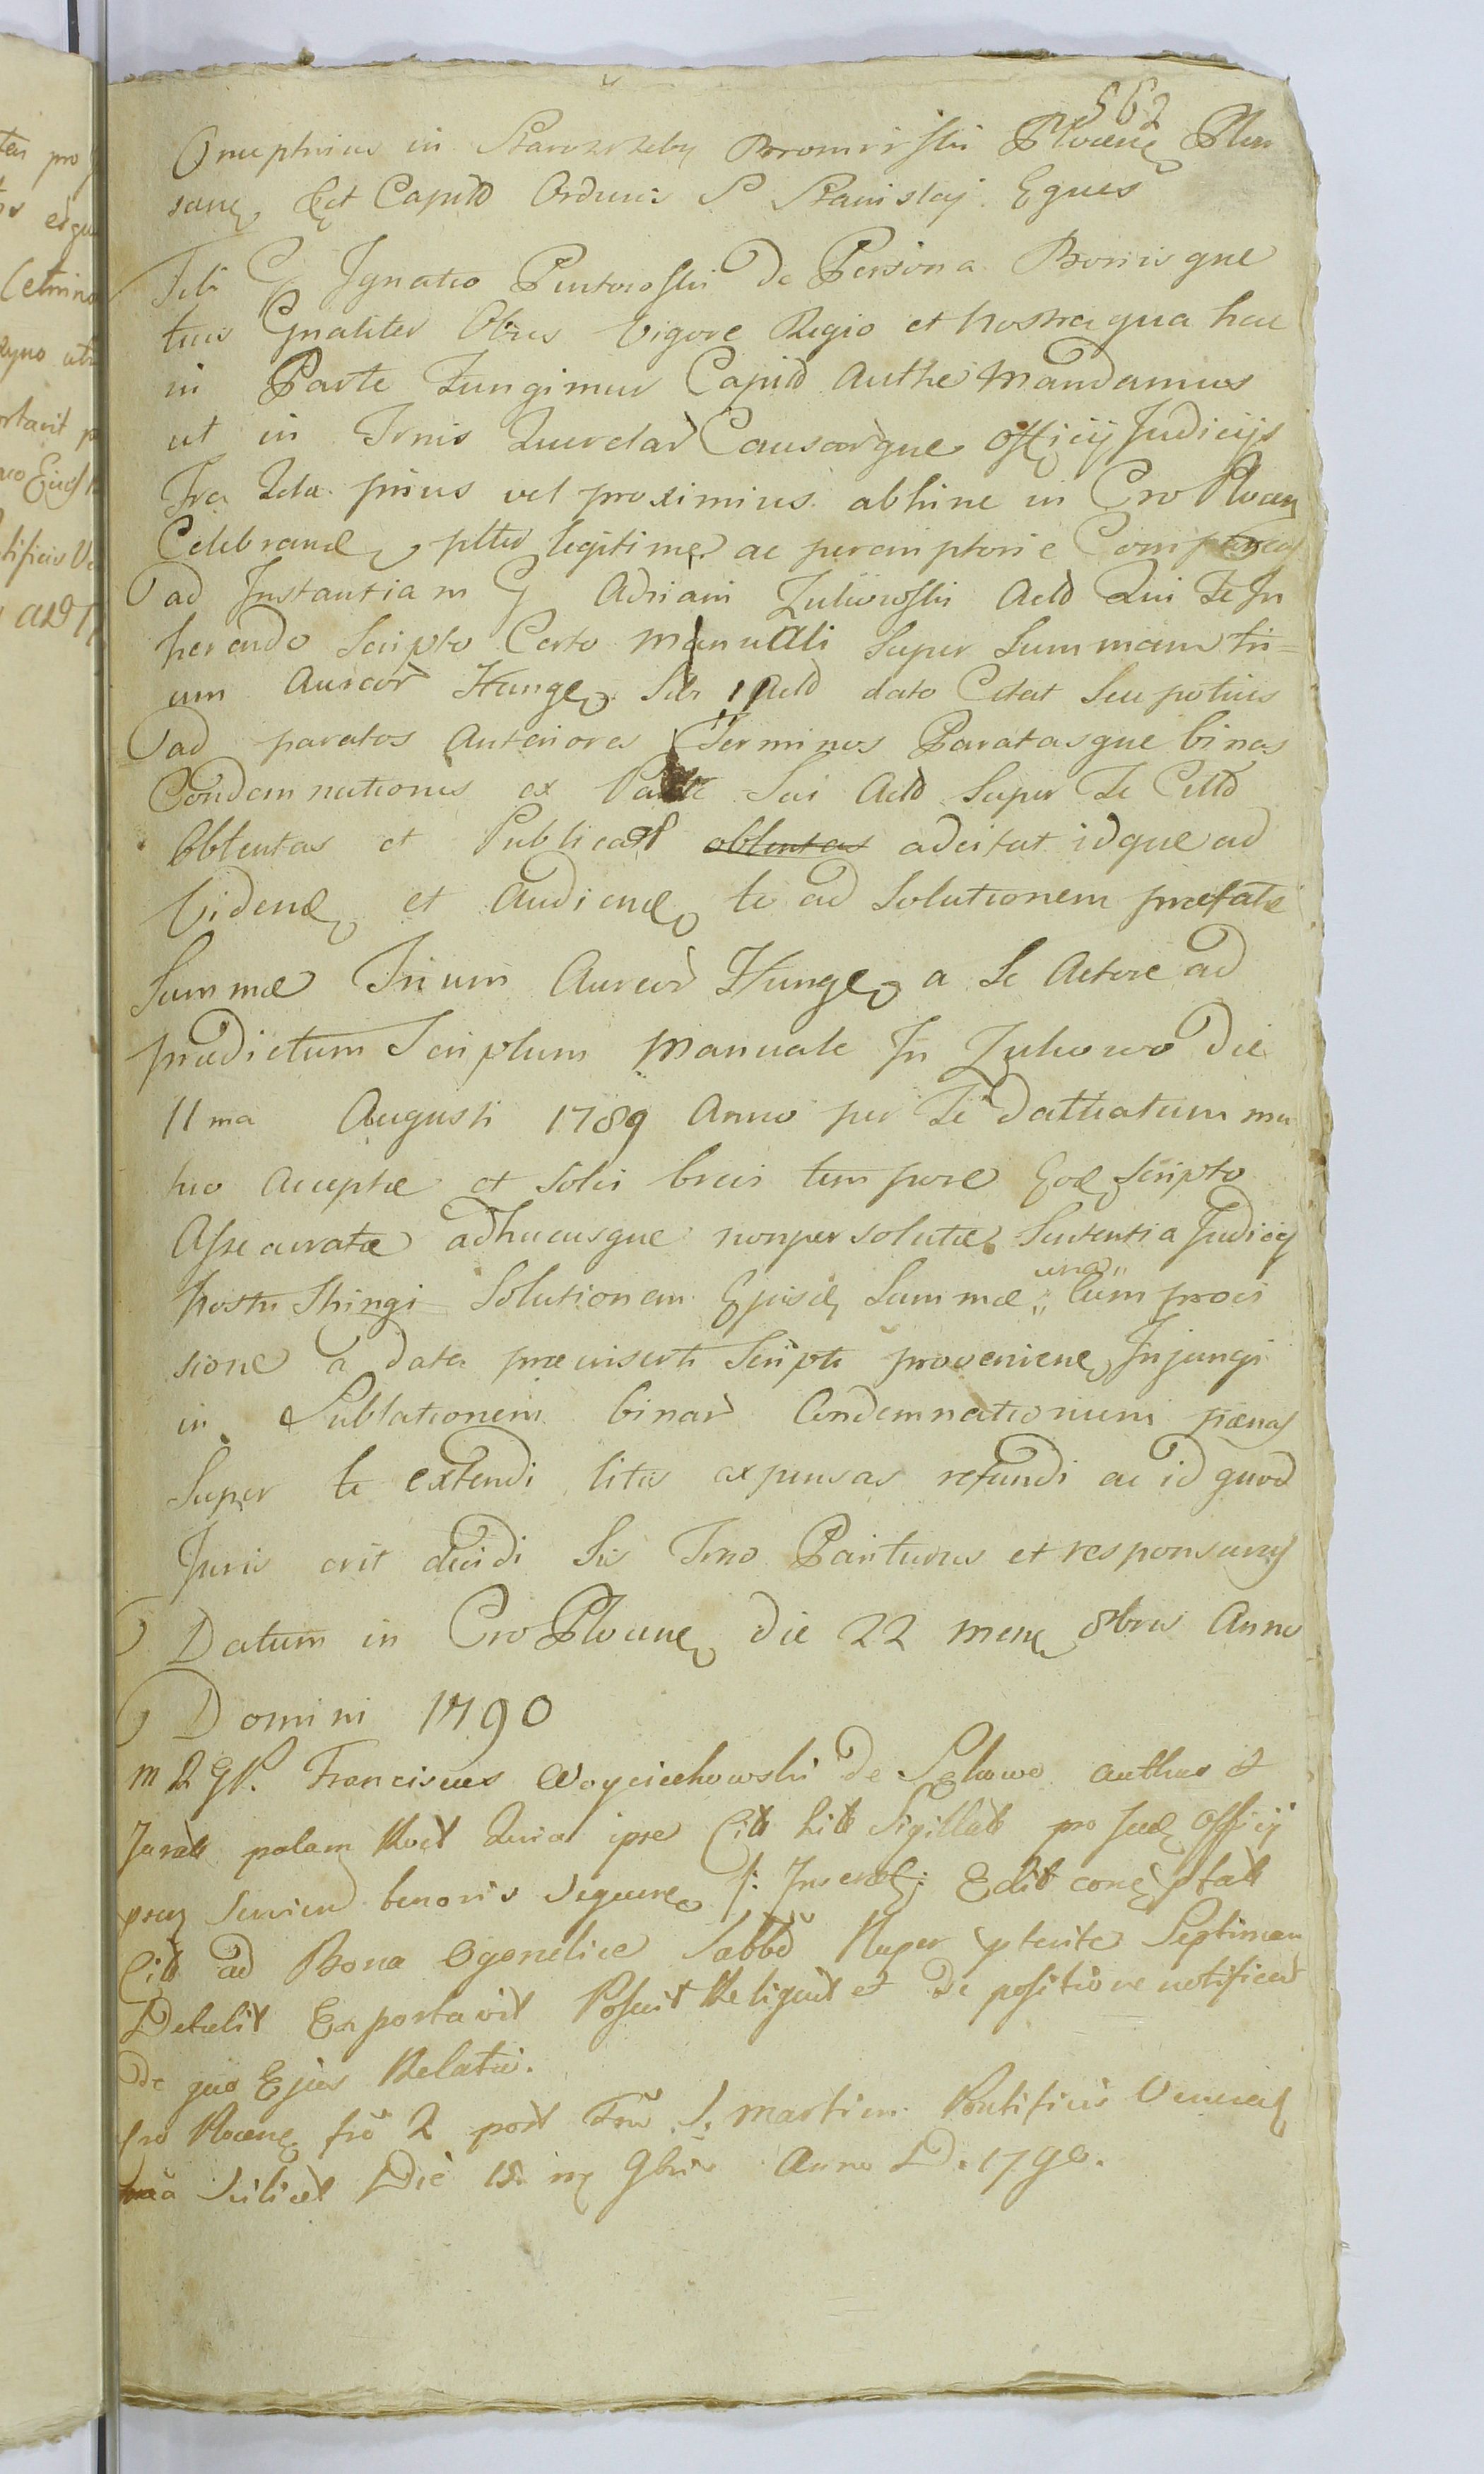 562
Onuphrius in Starozreby Bromirski Plocen Plon
sane &ct Capita Ordinis S Stanislaj Eques
Tibi G Ignatio de Persona Bonisque
tuis Gnaliter Obus Vigore Regio et nostra qua hac
in Parte Fungimur Capid Authe Mandamus
ut in Trnis Querelar Causarque Officij Judicijs
Fra 2da prius vel proximius abhinc in Cro Plocen
Celebrand pltr legitime ac peremptorie Compareas
ad Instantiam G Adriani Zukowski Actd Qui Te In
herendo Scripto Certo Manuali Super Summam tri=
um Aureor Hunge Sibi Actd dato Citat Seu potius
ad paratos Anteriores Terminos Paratasque binas
Condemnationes ex Parte Sui Actd Super Te Cittd
Obtentas et Publicat obtentas adcitat idque ad
Vidend et Audiend te ad Solutionem præfatæ
Summæ Trium Aureor Hunge a Se Actore ad
prædictum Scriptum Manuale In Zukowo Die
11ma Augusti 1789 Anno per Te Dattatum mu
tuo Acceptæ et Solvi brevi tempore Eod Scripto
Assecuratæ adhucusque nonpersolutæ Sententia Judicij
nostri Stringi Solutionem Ejusd Summæ una Cum provi
sione a data præinserti Scripti provenien Injungi
in Sublationem binar Condemnationum pænas
Super te extendi litis expensas refundi ac id quod
Juris erit decidi Sis Trno Pariturus et responsurus
Datum in Cro Plocen Die 22 Mens 8bris Anno
Domini 1790
M 2 GK. Franciscus Woyciechowski de Sękowo authus et
Juratt palam Quia ipse Citt Sigillatt pro Jud Officij
pren Servien tenoris sequen /: Inserat :/ Edit conceptatt
Citt ad Bona Ogonelice Sabbo Nuper pterite Septiman
Detulit Exportavit Posuit Reliquit et De positione notificavit
De quo Ejus Relatio.
Cro Plocen fro 2 post Fm S. Martini Pontificis
Scilicet Die 15 m 9bris Anno D. 1790.